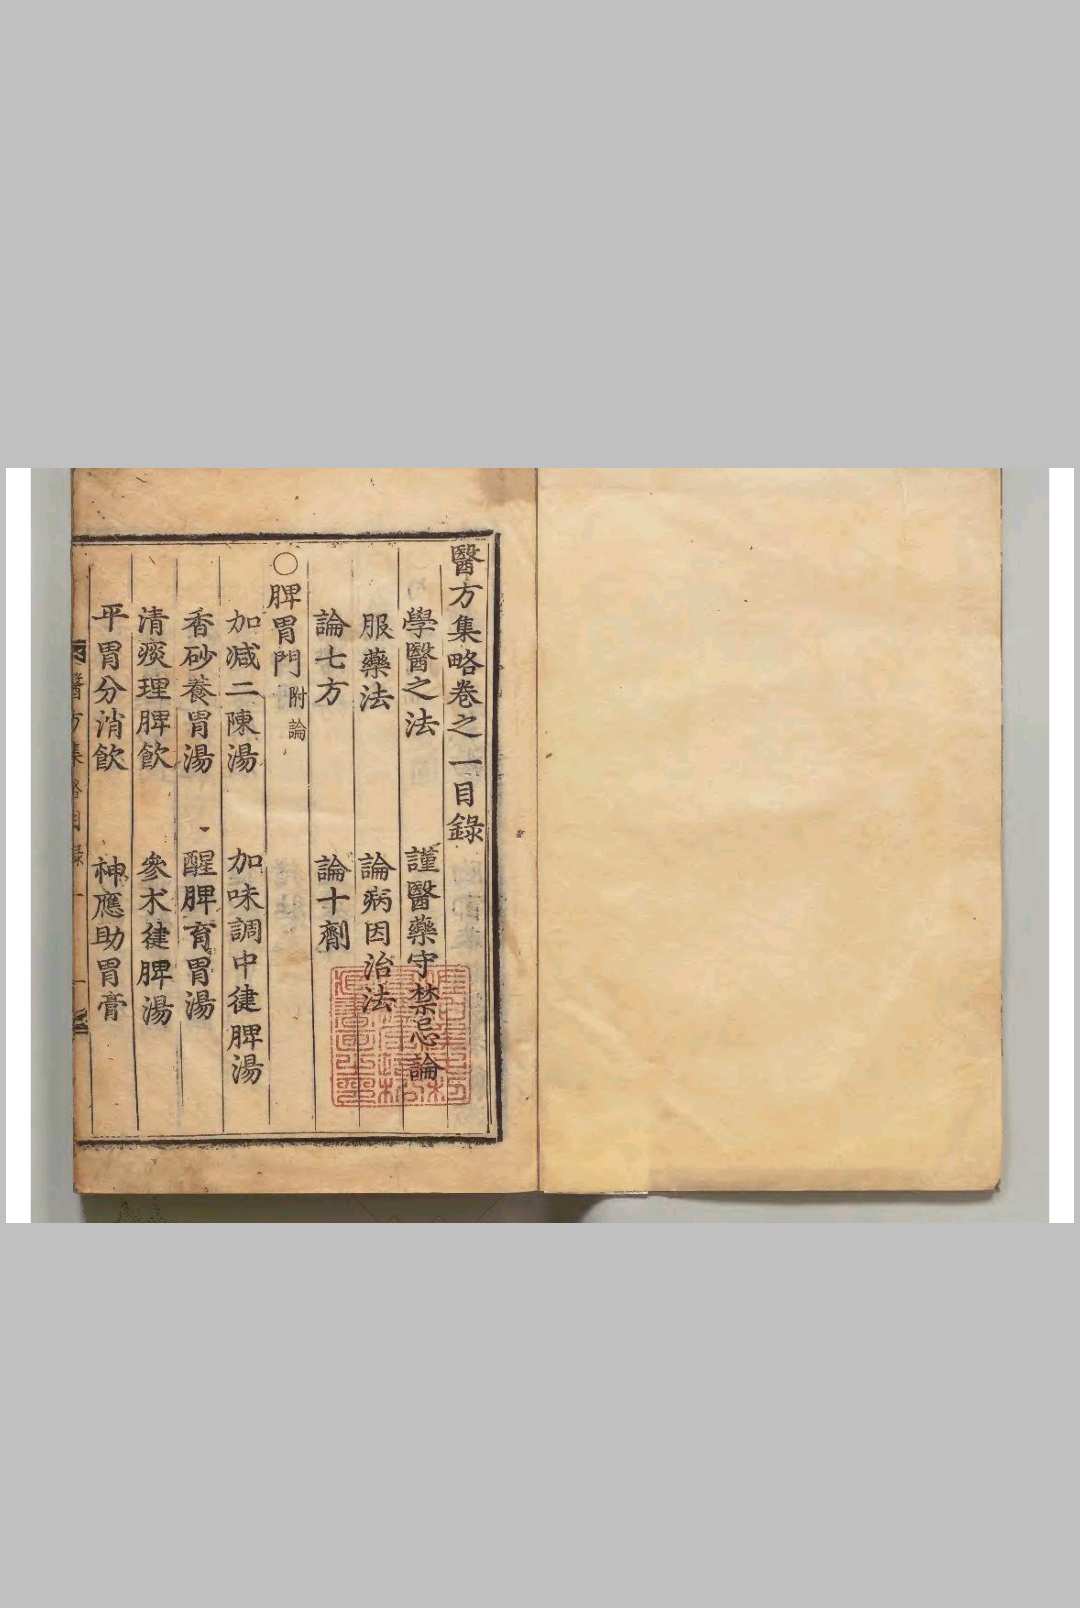 醫方集略卷之一目錄
學醫之法 謹醫藥守禁忌論
服藥法 論病因治法
論七方 論十劑
○脾胃門 附論
加減二陳湯 加味調中健脾湯
香砂養胃湯 醒脾育胃湯
清痰理脾飲 參朮健脾湯
平胃分消飲 神應助胃膏
醫方集略目錄 一